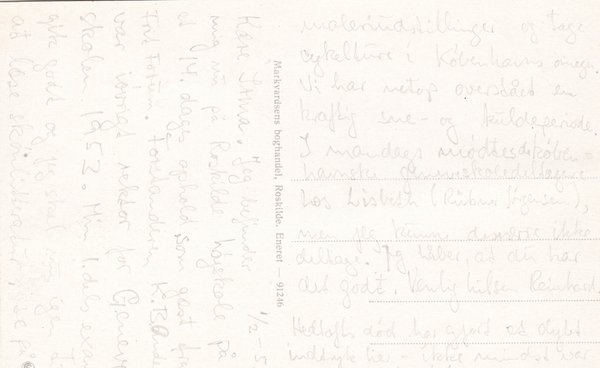 1/2-5
Kære Stina. Jeg befinder
mig nu på Roskilde højskole på
et 14. dages ophold som gæst fra
Fort Forum. Forstanderen K.B. Ande
var iøvrigt rektor for Geneve
skolen 1952. Min 1. dels exam
gik godt og jeg skal nu igen
at læse skønlitteratur, se på
malerudstillinger og tage
cykelture i Københavns omegn.
Vi har netop overstået en
kraftig sne- og kuldeperiode.
I mandags mødtes de køben-
havnske Geneveskoledeltagere
hos Lisbeth (Rübner Jørgensen),
men jeg kunne desværre ikke
deltage. Jeg håber, at du har
det godt. Venlig hilsen Reinhard.
Hedtofts død har gjort et dybt
indtryk her - ikke mindst var
Markvardsens boghandel, Roskilde. Eneret 91246